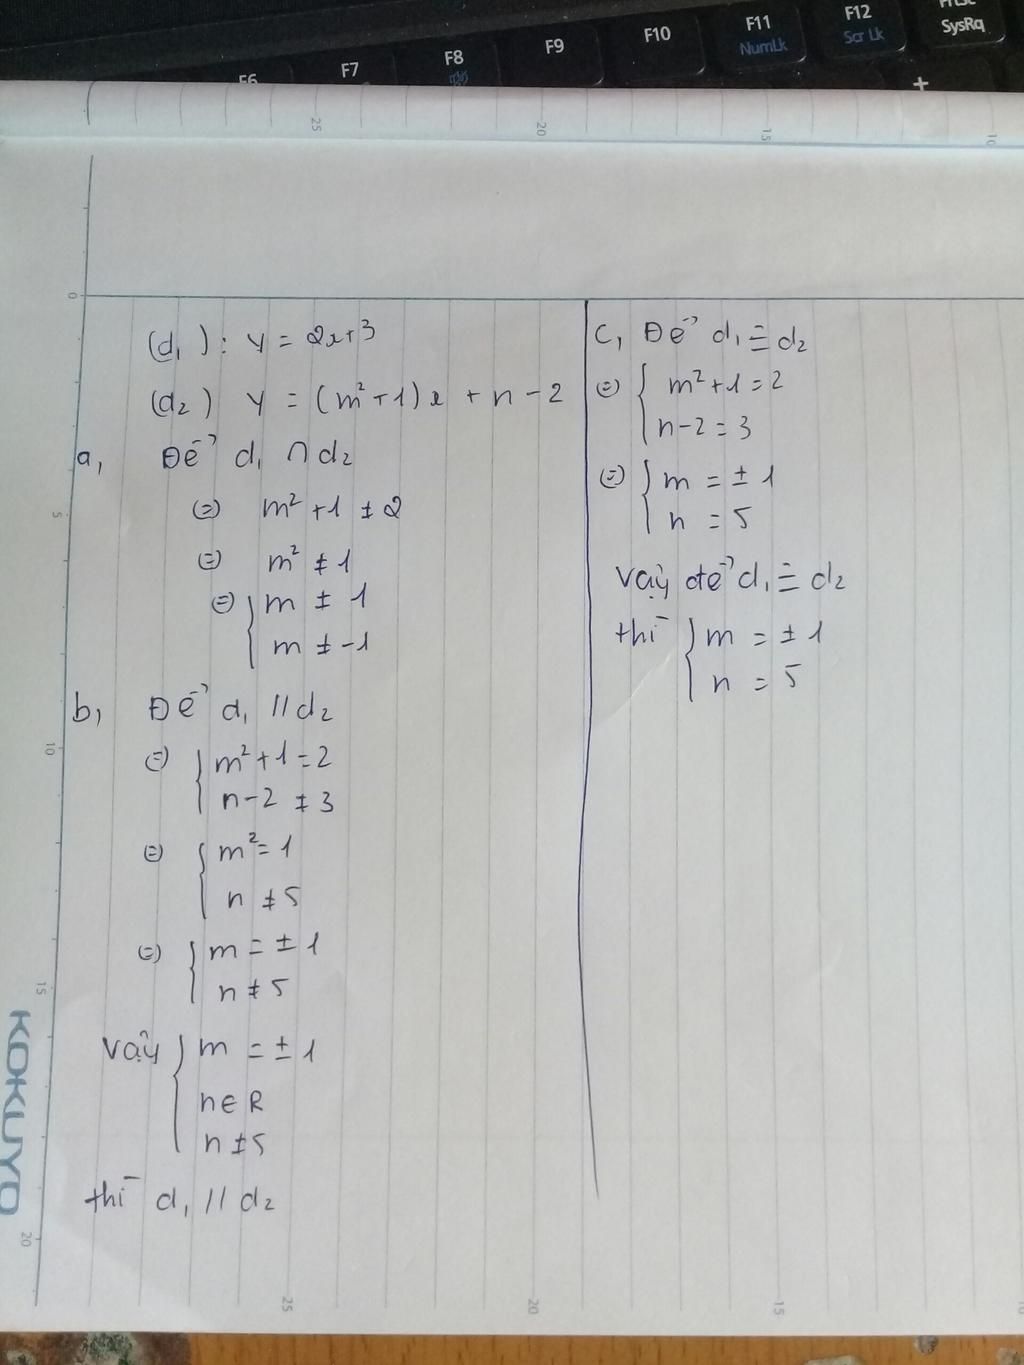 F6
F7
F8
F9
F10
F11
NumLk
F12
Scr Lk
PrtSc
SysRq
+
25
20
15
10
0
(d₁): y = 2x+3
(d₂) y = (m²+1)x + n - 2
a, Để d₁ ∩ d₂
⇔ m²+1 ≠ 2
⇔ m² ≠ 1
⇔ { m ≠ 1
m ≠ -1
b, Để d₁ // d₂
⇔ { m²+1 = 2
n-2 ≠ 3
⇔ { m² = 1
n ≠ 5
⇔ { m = ± 1
n ≠ 5
Vậy { m = ± 1
n ∈ R
n ≠ 5
thì d₁ // d₂
c, Để d₁ ≡ d₂
⇔ { m²+1 = 2
n-2 = 3
⇔ { m = ± 1
n = 5
Vậy để d₁ ≡ d₂
thì { m = ± 1
n = 5
5
10
15
KOKUYO
20
25
20
15